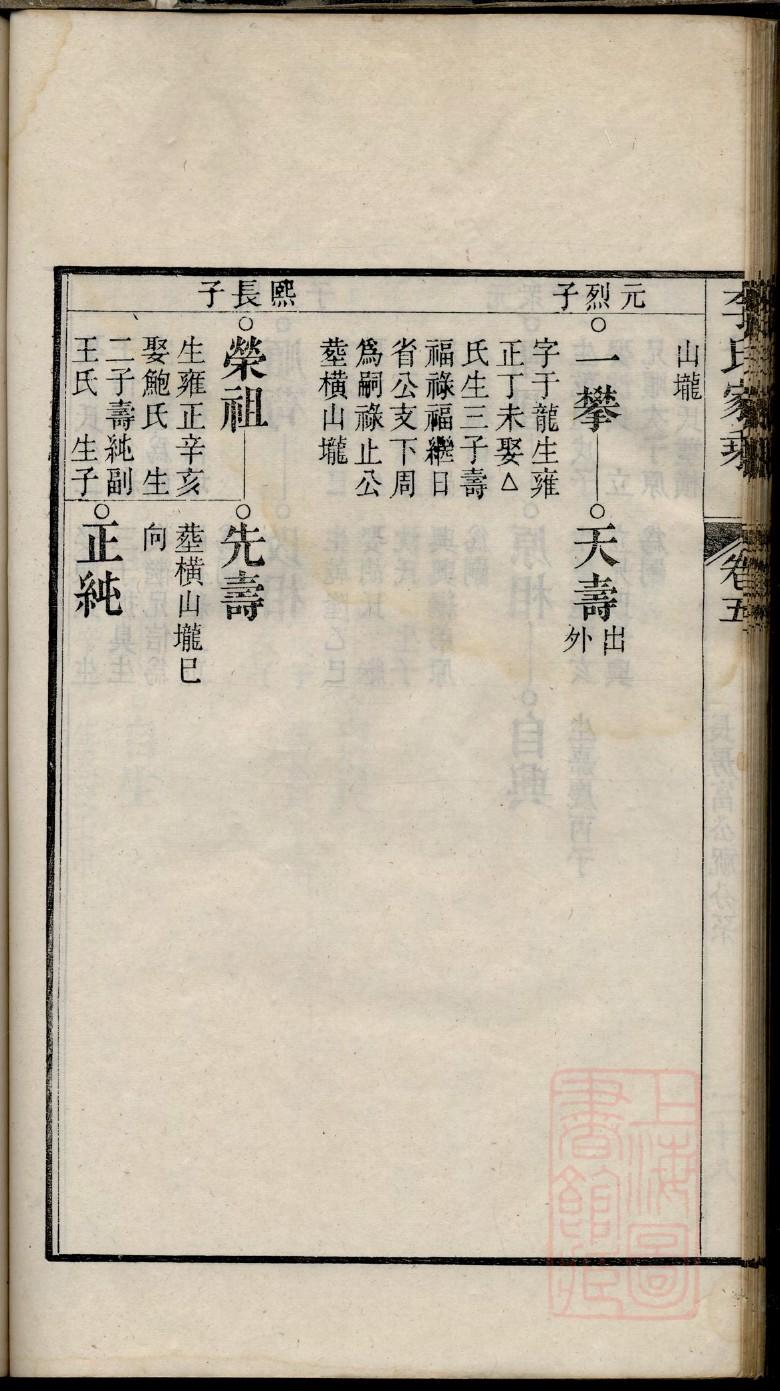 李氏家乘
卷五
山壠
元烈子
一攀
字于龍生雍
正丁未娶△
氏生三子壽
福祿福繼日
省公支下周
爲嗣祿止公
塟橫山壠
天壽
出
外
熙長子
榮祖
生雍正辛亥
娶鮑氏 生
二子壽純副
王氏 生子
先壽
塟橫山壠巳
向
正純
上海圖
書館藏